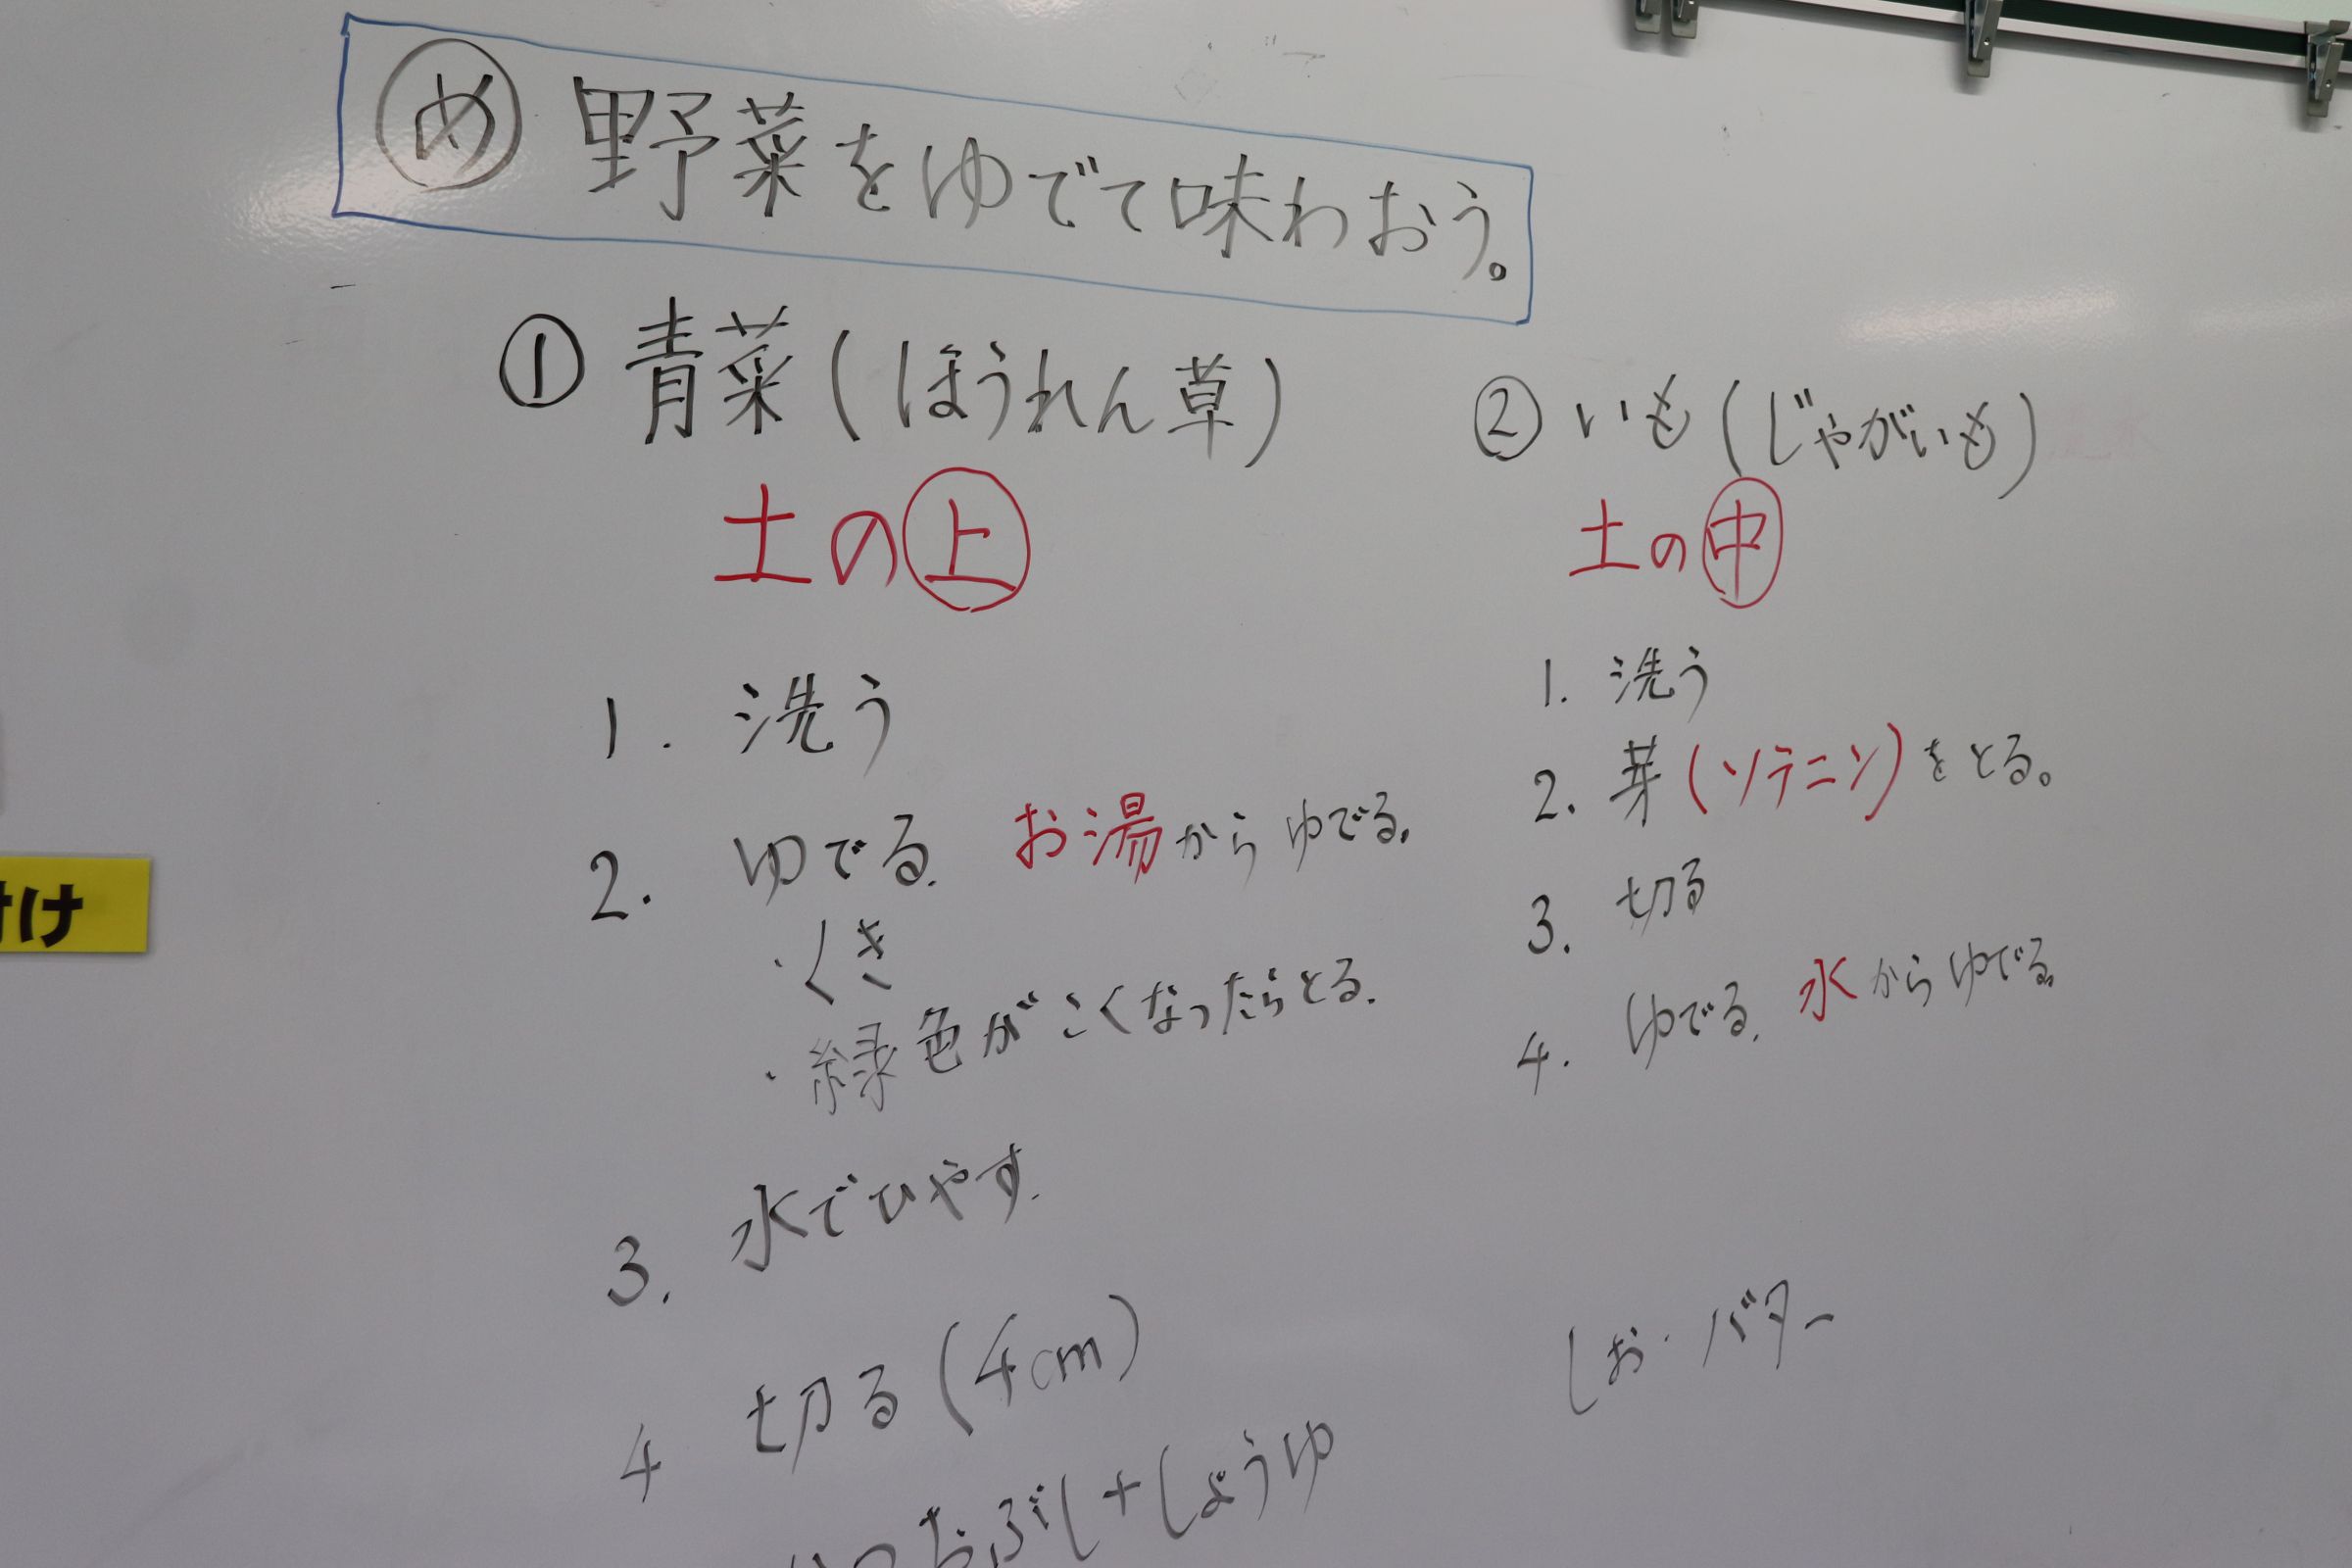 め 野菜をゆでて味わおう。
① 青菜(ほうれん草)
土の上
1. 洗う
2. ゆでる. お湯からゆでる.
・くき
・緑色がこくなったらとる.
3. 水でひやす.
4 切る(4cm)
かつおぶし+しょうゆ
② いも(じゃがいも)
土の中
1. 洗う
2. 芽(ソラニン)をとる。
3. 切る
4. ゆでる. 水からゆでる.
しお・バター
け